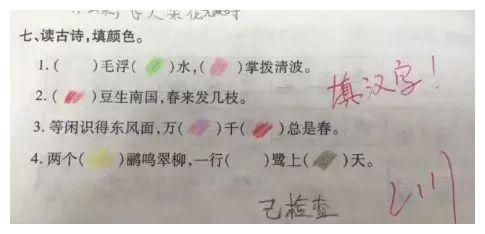 七、读古诗，填颜色。
1. (    )毛浮(    )水，(    )掌拨清波。
2. (    )豆生南国，春来发几枝。
填汉字！
3. 等闲识得东风面，万(    )千(    )总是春。
4. 两个(    )鹂鸣翠柳，一行(    )鹭上(    )天。
已检查